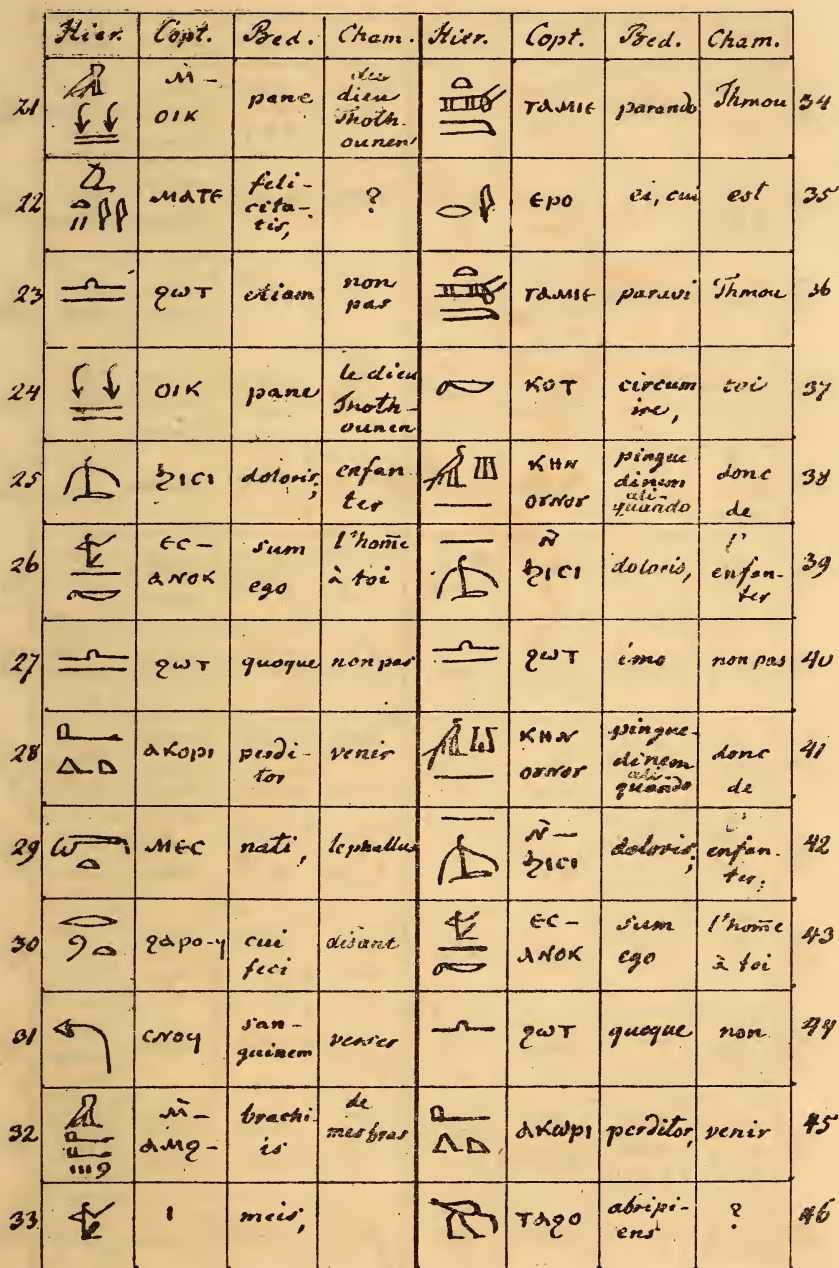 Hier. Copt. Bed. Cham. Hier. Copt. Bed. Cham.
21 ⲙ̄- ⲟⲓⲕ pane du dieu Thoth-ounen ⲧⲁⲙⲓⲉ parando Thmou 34
22 ⲙⲁⲧⲉ felicita-tis, ? ⲉⲣⲟ ei, cui est 35
23 ϩⲱⲧ etiam non pas ⲧⲁⲙⲓⲉ paravi Thmou 36
24 ⲟⲓⲕ pane le dieu Thoth-ounen ⲕⲟⲧ circum ire, toi 37
25 ϧⲓⲥⲓ doloris, enfanter ⲕⲏⲛ pinguedinem ali-quando donc de 38
26 ⲉⲥ- ⲁⲛⲟⲕ sum ego l'home à toi ⲛ̄ ϧⲓⲥⲓ doloris, l' enfan-ter 39
27 ϩⲱⲧ quoque non pas ϩⲱⲧ imo non pas 40
28 ⲁⲕⲟⲣⲓ perdi-tor venir ⲕⲏⲛ pingue-dinem ali-quando donc de 41
29 ⲙⲉⲥ nati, le phallus ⲛ̄- ϧⲓⲥⲓ doloris, enfan-ter, 42
30 ϩⲁⲣⲟ-ϥ cui feci disant ⲉⲥ- ⲁⲛⲟⲕ sum ego l'home à toi 43
31 ⲥⲛⲟϥ san-guinem verser ϩⲱⲧ quoque non 44
32 ⲙ̄- ⲁⲙϩ- brachi-is de mes bras ⲁⲕⲱⲣⲓ perditor, venir 45
33 ⲓ meis, ⲧⲁϩⲟ abripi-ens ? 46